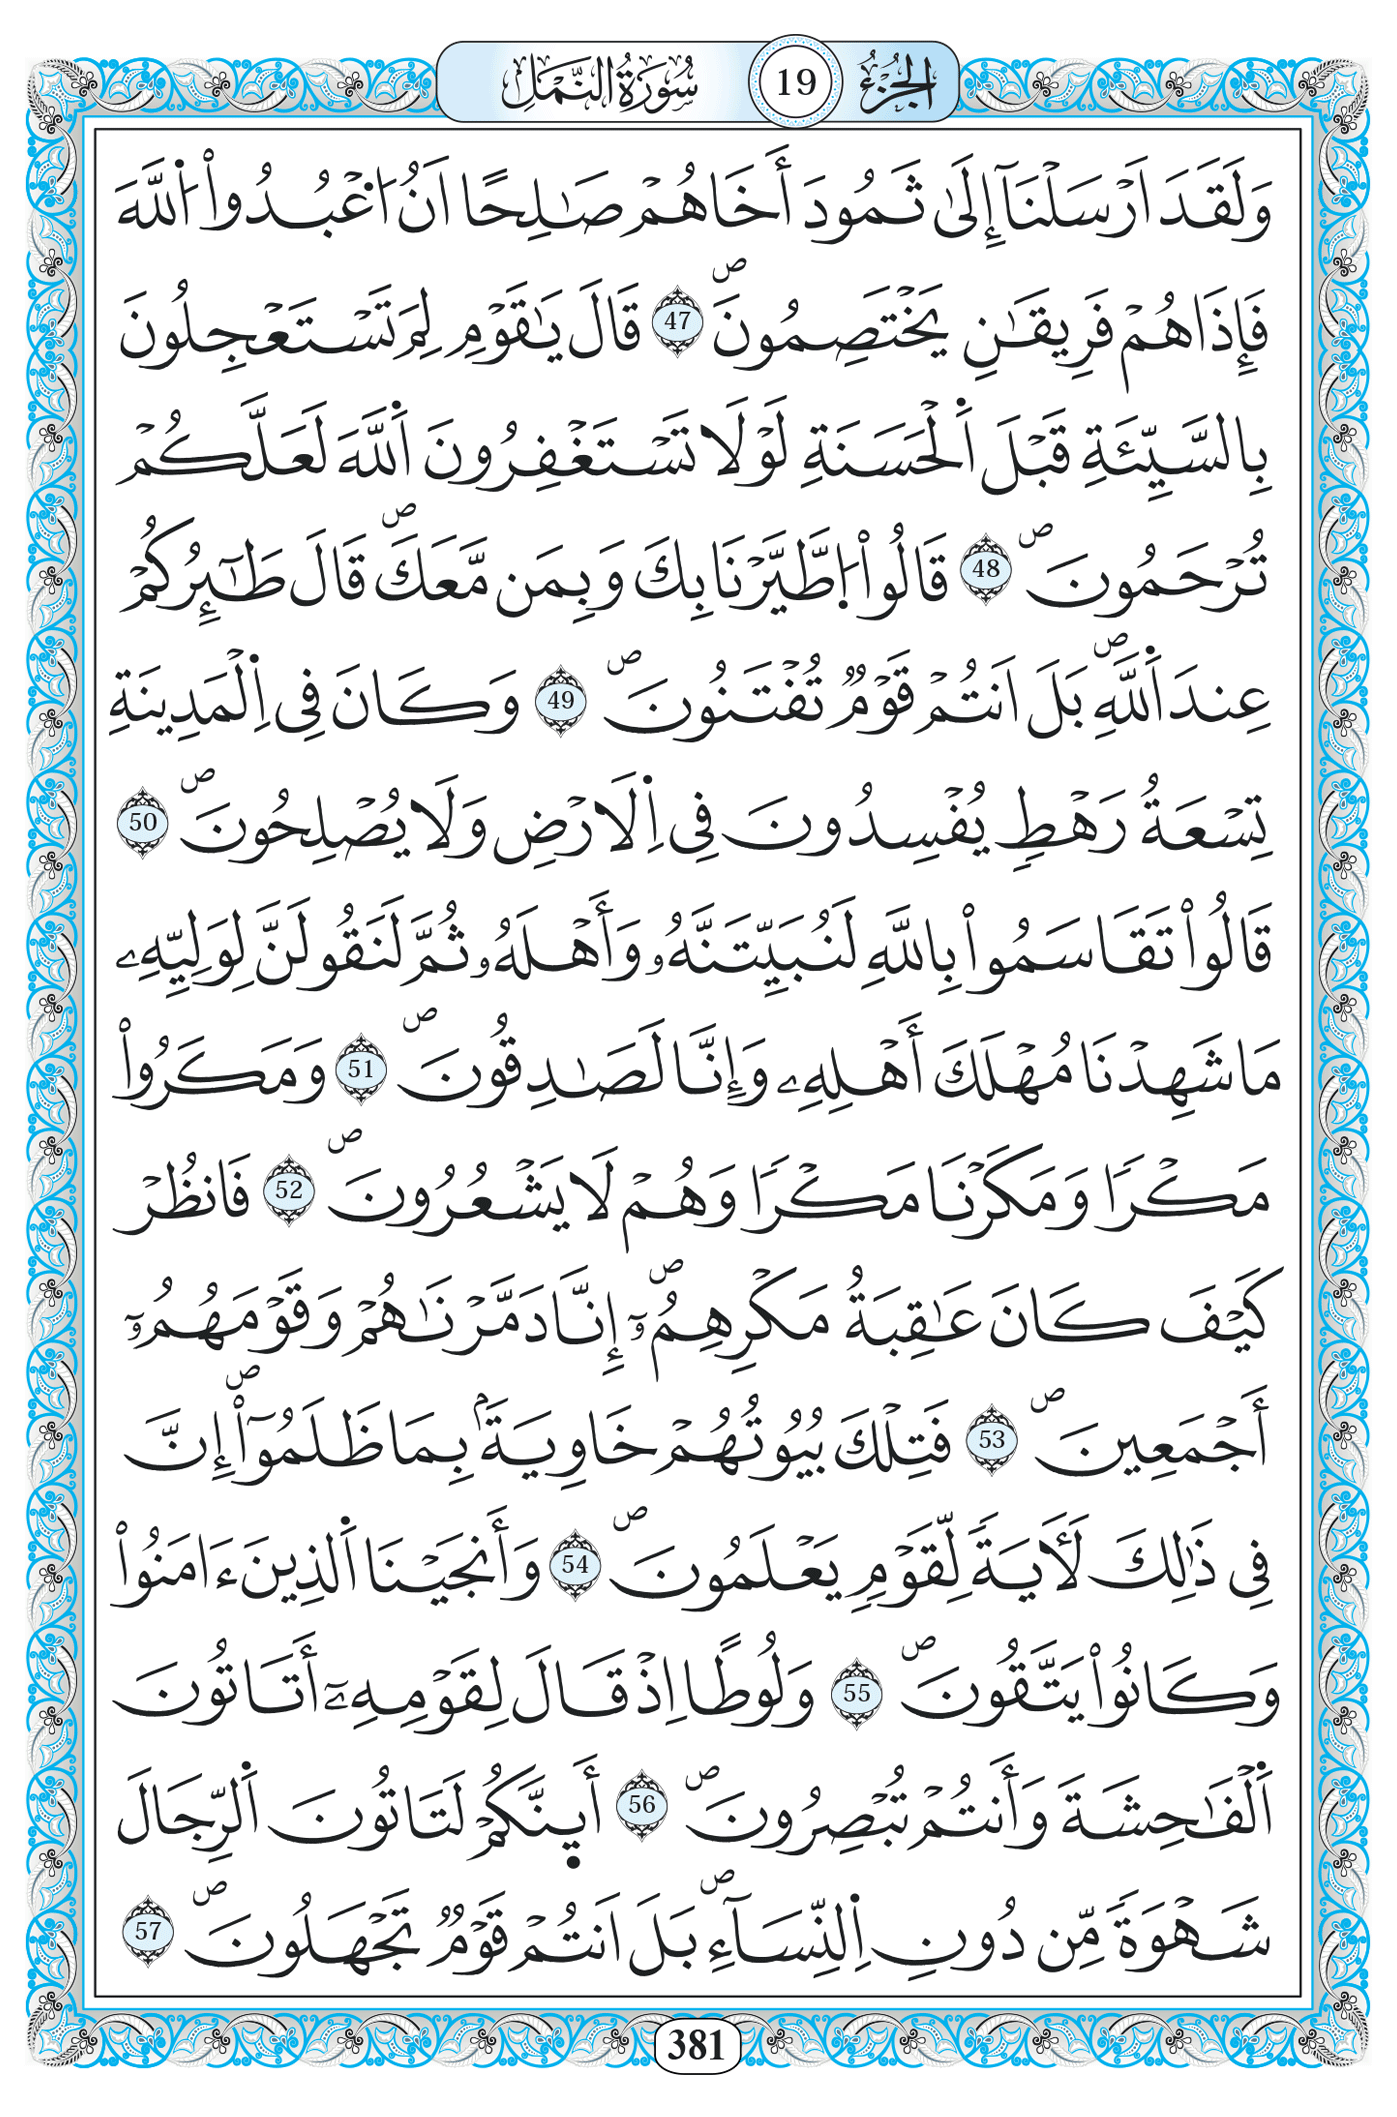 الجزء 19 سورة النمل
وَلَقَدَ اَرْسَلْنَآ إِلَىٰ ثَمُودَ أَخَاهُمْ صَٰلِحًا اَنُ اُ۟عْبُدُوا۟ اُ۬للَّهَ
فَإِذَا هُمْ فَرِيقَٰنِ يَخْتَصِمُونَۖ 47 قَالَ يَٰقَوْمِ لِمَ تَسْتَعْجِلُونَ
بِالسَّيِّئَةِ قَبْلَ اَ۬لْحَسَنَةِ لَوْلَا تَسْتَغْفِرُونَ اَ۬للَّهَ لَعَلَّكُمْ
تُرْحَمُونَۖ 48 قَالُوا۟ اُ۪طَّيَّرْنَا بِكَ وَبِمَن مَّعَكَۖ قَالَ طَٰٓئِرُكُمْ
عِندَ اَ۬للَّهِۖ بَلَ اَنتُمْ قَوْمٌ تُفْتَنُونَۖ 49 وَكَانَ فِى اِ۬لْمَدِينَةِ
تِسْعَةُ رَهْطٍ يُفْسِدُونَ فِى اِ۬لَارْضِ وَلَا يُصْلِحُونَۖ 50
قَالُوا۟ تَقَاسَمُوا۟ بِاللَّهِ لَنُبَيِّتَنَّهُۥ وَأَهْلَهُۥ ثُمَّ لَنَقُولَنَّ لِوَلِيِّهِۦ
مَا شَهِدْنَا مُهْلَكَ أَهْلِهِۦ وَإِنَّا لَصَٰدِقُونَۖ 51 وَمَكَرُوا۟
مَكْرًا وَمَكَرْنَا مَكْرًا وَهُمْ لَا يَشْعُرُونَۖ 52 فَانظُرْ
كَيْفَ كَانَ عَٰقِبَةُ مَكْرِهِمُۥٓۖ إِنَّا دَمَّرْنَٰهُمْ وَقَوْمَهُمُۥٓ
أَجْمَعِينَۖ 53 فَتِلْكَ بُيُوتُهُمْ خَاوِيَةَۢ بِمَا ظَلَمُوٓا۟ۖ إِنَّ
فِى ذَٰلِكَ لَأٓيَةً لِّقَوْمٍ يَعْلَمُونَۖ 54 وَأَنجَيْنَا اَ۬لذِينَ ءَامَنُوا۟
وَكَانُوا۟ يَتَّقُونَۖ 55 وَلُوطًا اِذْ قَالَ لِقَوْمِهِۦٓ أَتَاتُونَ
اَ۬لْفَٰحِشَةَ وَأَنتُمْ تُبْصِرُونَۖ 56 أَى۪نَّكُمْ لَتَاتُونَ اَ۬لرِّجَالَ
شَهْوَةً مِّن دُونِ اِ۬لنِّسَآءِۖ بَلَ اَنتُمْ قَوْمٌ تَجْهَلُونَۖ 57
381